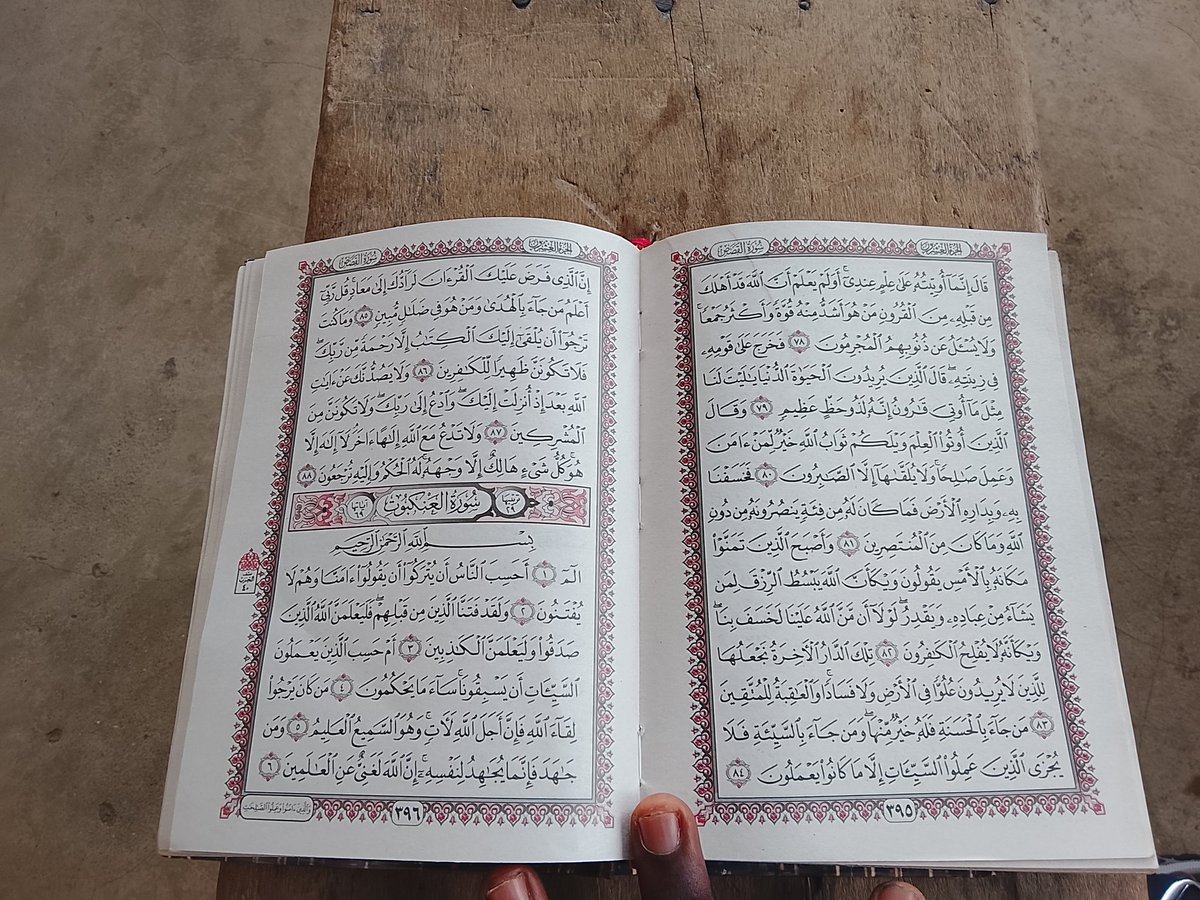 سورة القصص
الجزء العشرون
قَالَ إِنَّمَآ أُوتِيتُهُۥ عَلَىٰ عِلْمٍ عِندِىٓ ۚ أَوَلَمْ يَعْلَمْ أَنَّ ٱللَّهَ قَدْ أَهْلَكَ
مِن قَبْلِهِۦ مِنَ ٱلْقُرُونِ مَنْ هُوَ أَشَدُّ مِنْهُ قُوَّةً وَأَكْثَرُ جَمْعًا ۚ
وَلَا يُسْـَٔلُ عَن ذُنُوبِهِمُ ٱلْمُجْرِمُونَ ٧٨ فَخَرَجَ عَلَىٰ قَوْمِهِۦ
فِى زِينَتِهِۦ ۖ قَالَ ٱلَّذِينَ يُرِيدُونَ ٱلْحَيَوٰةَ ٱلدُّنْيَا يَـٰلَيْتَ لَنَا
مِثْلَ مَآ أُوتِىَ قَـٰرُونُ إِنَّهُۥ لَذُو حَظٍّ عَظِيمٍ ٧٩ وَقَالَ
ٱلَّذِينَ أُوتُوا۟ ٱلْعِلْمَ وَيْلَكُمْ ثَوَابُ ٱللَّهِ خَيْرٌ لِّمَنْ ءَامَنَ
وَعَمِلَ صَـٰلِحًا ۚ وَلَا يُلَقَّىٰهَآ إِلَّا ٱلصَّـٰبِرُونَ ٨٠ فَخَسَفْنَا
بِهِۦ وَبِدَارِهِ ٱلْأَرْضَ فَمَا كَانَ لَهُۥ مِن فِئَةٍ يَنصُرُونَهُۥ مِن دُونِ
ٱللَّهِ وَمَا كَانَ مِنَ ٱلْمُنتَصِرِينَ ٨١ وَأَصْبَحَ ٱلَّذِينَ تَمَنَّوْا۟
مَكَانَهُۥ بِٱلْأَمْسِ يَقُولُونَ وَيْكَأَنَّ ٱللَّهَ يَبْسُطُ ٱلرِّزْقَ لِمَن
يَشَآءُ مِنْ عِبَادِهِۦ وَيَقْدِرُ ۖ لَوْلَآ أَن مَّنَّ ٱللَّهُ عَلَيْنَا لَخَسَفَ بِنَا ۖ
وَيْكَأَنَّهُۥ لَا يُفْلِحُ ٱلْكَـٰفِرُونَ ٨٢ تِلْكَ ٱلدَّارُ ٱلْـَٔاخِرَةُ نَجْعَلُهَا
لِلَّذِينَ لَا يُرِيدُونَ عُلُوًّا فِى ٱلْأَرْضِ وَلَا فَسَادًا ۚ وَٱلْعَـٰقِبَةُ لِلْمُتَّقِينَ
٨٣ مَن جَآءَ بِٱلْحَسَنَةِ فَلَهُۥ خَيْرٌ مِّنْهَا ۖ وَمَن جَآءَ بِٱلسَّيِّئَةِ فَلَا
يُجْزَى ٱلَّذِينَ عَمِلُوا۟ ٱلسَّيِّـَٔاتِ إِلَّا مَا كَانُوا۟ يَعْمَلُونَ ٨٤
٣٩٥
الجزء العشرون
سورة القصص
إِنَّ ٱلَّذِى فَرَضَ عَلَيْكَ ٱلْقُرْءَانَ لَرَآدُّكَ إِلَىٰ مَعَادٍ ۚ قُل رَّبِّىٓ
أَعْلَمُ مَن جَآءَ بِٱلْهُدَىٰ وَمَنْ هُوَ فِى ضَلَـٰلٍ مُّبِينٍ ٨٥ وَمَا كُنتَ
تَرْجُوٓا۟ أَن يُلْقَىٰٓ إِلَيْكَ ٱلْكِتَـٰبُ إِلَّا رَحْمَةً مِّن رَّبِّكَ ۖ
فَلَا تَكُونَنَّ ظَهِيرًا لِّلْكَـٰفِرِينَ ٨٦ وَلَا يَصُدُّنَّكَ عَنْ ءَايَـٰتِ
ٱللَّهِ بَعْدَ إِذْ أُنزِلَتْ إِلَيْكَ ۖ وَٱدْعُ إِلَىٰ رَبِّكَ ۖ وَلَا تَكُونَنَّ مِنَ
ٱلْمُشْرِكِينَ ٨٧ وَلَا تَدْعُ مَعَ ٱللَّهِ إِلَـٰهًا ءَاخَرَ ۘ لَآ إِلَـٰهَ إِلَّا
هُوَ ۚ كُلُّ شَىْءٍ هَالِكٌ إِلَّا وَجْهَهُۥ ۚ لَهُ ٱلْحُكْمُ وَإِلَيْهِ تُرْجَعُونَ ٨٨
ترتيبها ٢٩ سُورَةُ العَنكَبُوتِ آياتها ٦٩
بِسْمِ ٱللَّهِ ٱلرَّحْمَـٰنِ ٱلرَّحِيمِ
الٓمٓ ١ أَحَسِبَ ٱلنَّاسُ أَن يُتْرَكُوٓا۟ أَن يَقُولُوٓا۟ ءَامَنَّا وَهُمْ لَا
يُفْتَنُونَ ٢ وَلَقَدْ فَتَنَّا ٱلَّذِينَ مِن قَبْلِهِمْ ۖ فَلَيَعْلَمَنَّ ٱللَّهُ ٱلَّذِينَ
صَدَقُوا۟ وَلَيَعْلَمَنَّ ٱلْكَـٰذِبِينَ ٣ أَمْ حَسِبَ ٱلَّذِينَ يَعْمَلُونَ
ٱلسَّيِّـَٔاتِ أَن يَسْبِقُونَا ۚ سَآءَ مَا يَحْكُمُونَ ٤ مَن كَانَ يَرْجُوا۟
لِقَآءَ ٱللَّهِ فَإِنَّ أَجَلَ ٱللَّهِ لَـَٔاتٍ ۚ وَهُوَ ٱلسَّمِيعُ ٱلْعَلِيمُ ٥ وَمَن
جَـٰهَدَ فَإِنَّمَا يُجَـٰهِدُ لِنَفْسِهِۦٓ ۚ إِنَّ ٱللَّهَ لَغَنِىٌّ عَنِ ٱلْعَـٰلَمِينَ ٦
٣٩٦
وَٱلَّذِينَ ءَامَنُوا۟ وَعَمِلُوا۟ ٱلصَّـٰلِحَـٰتِ